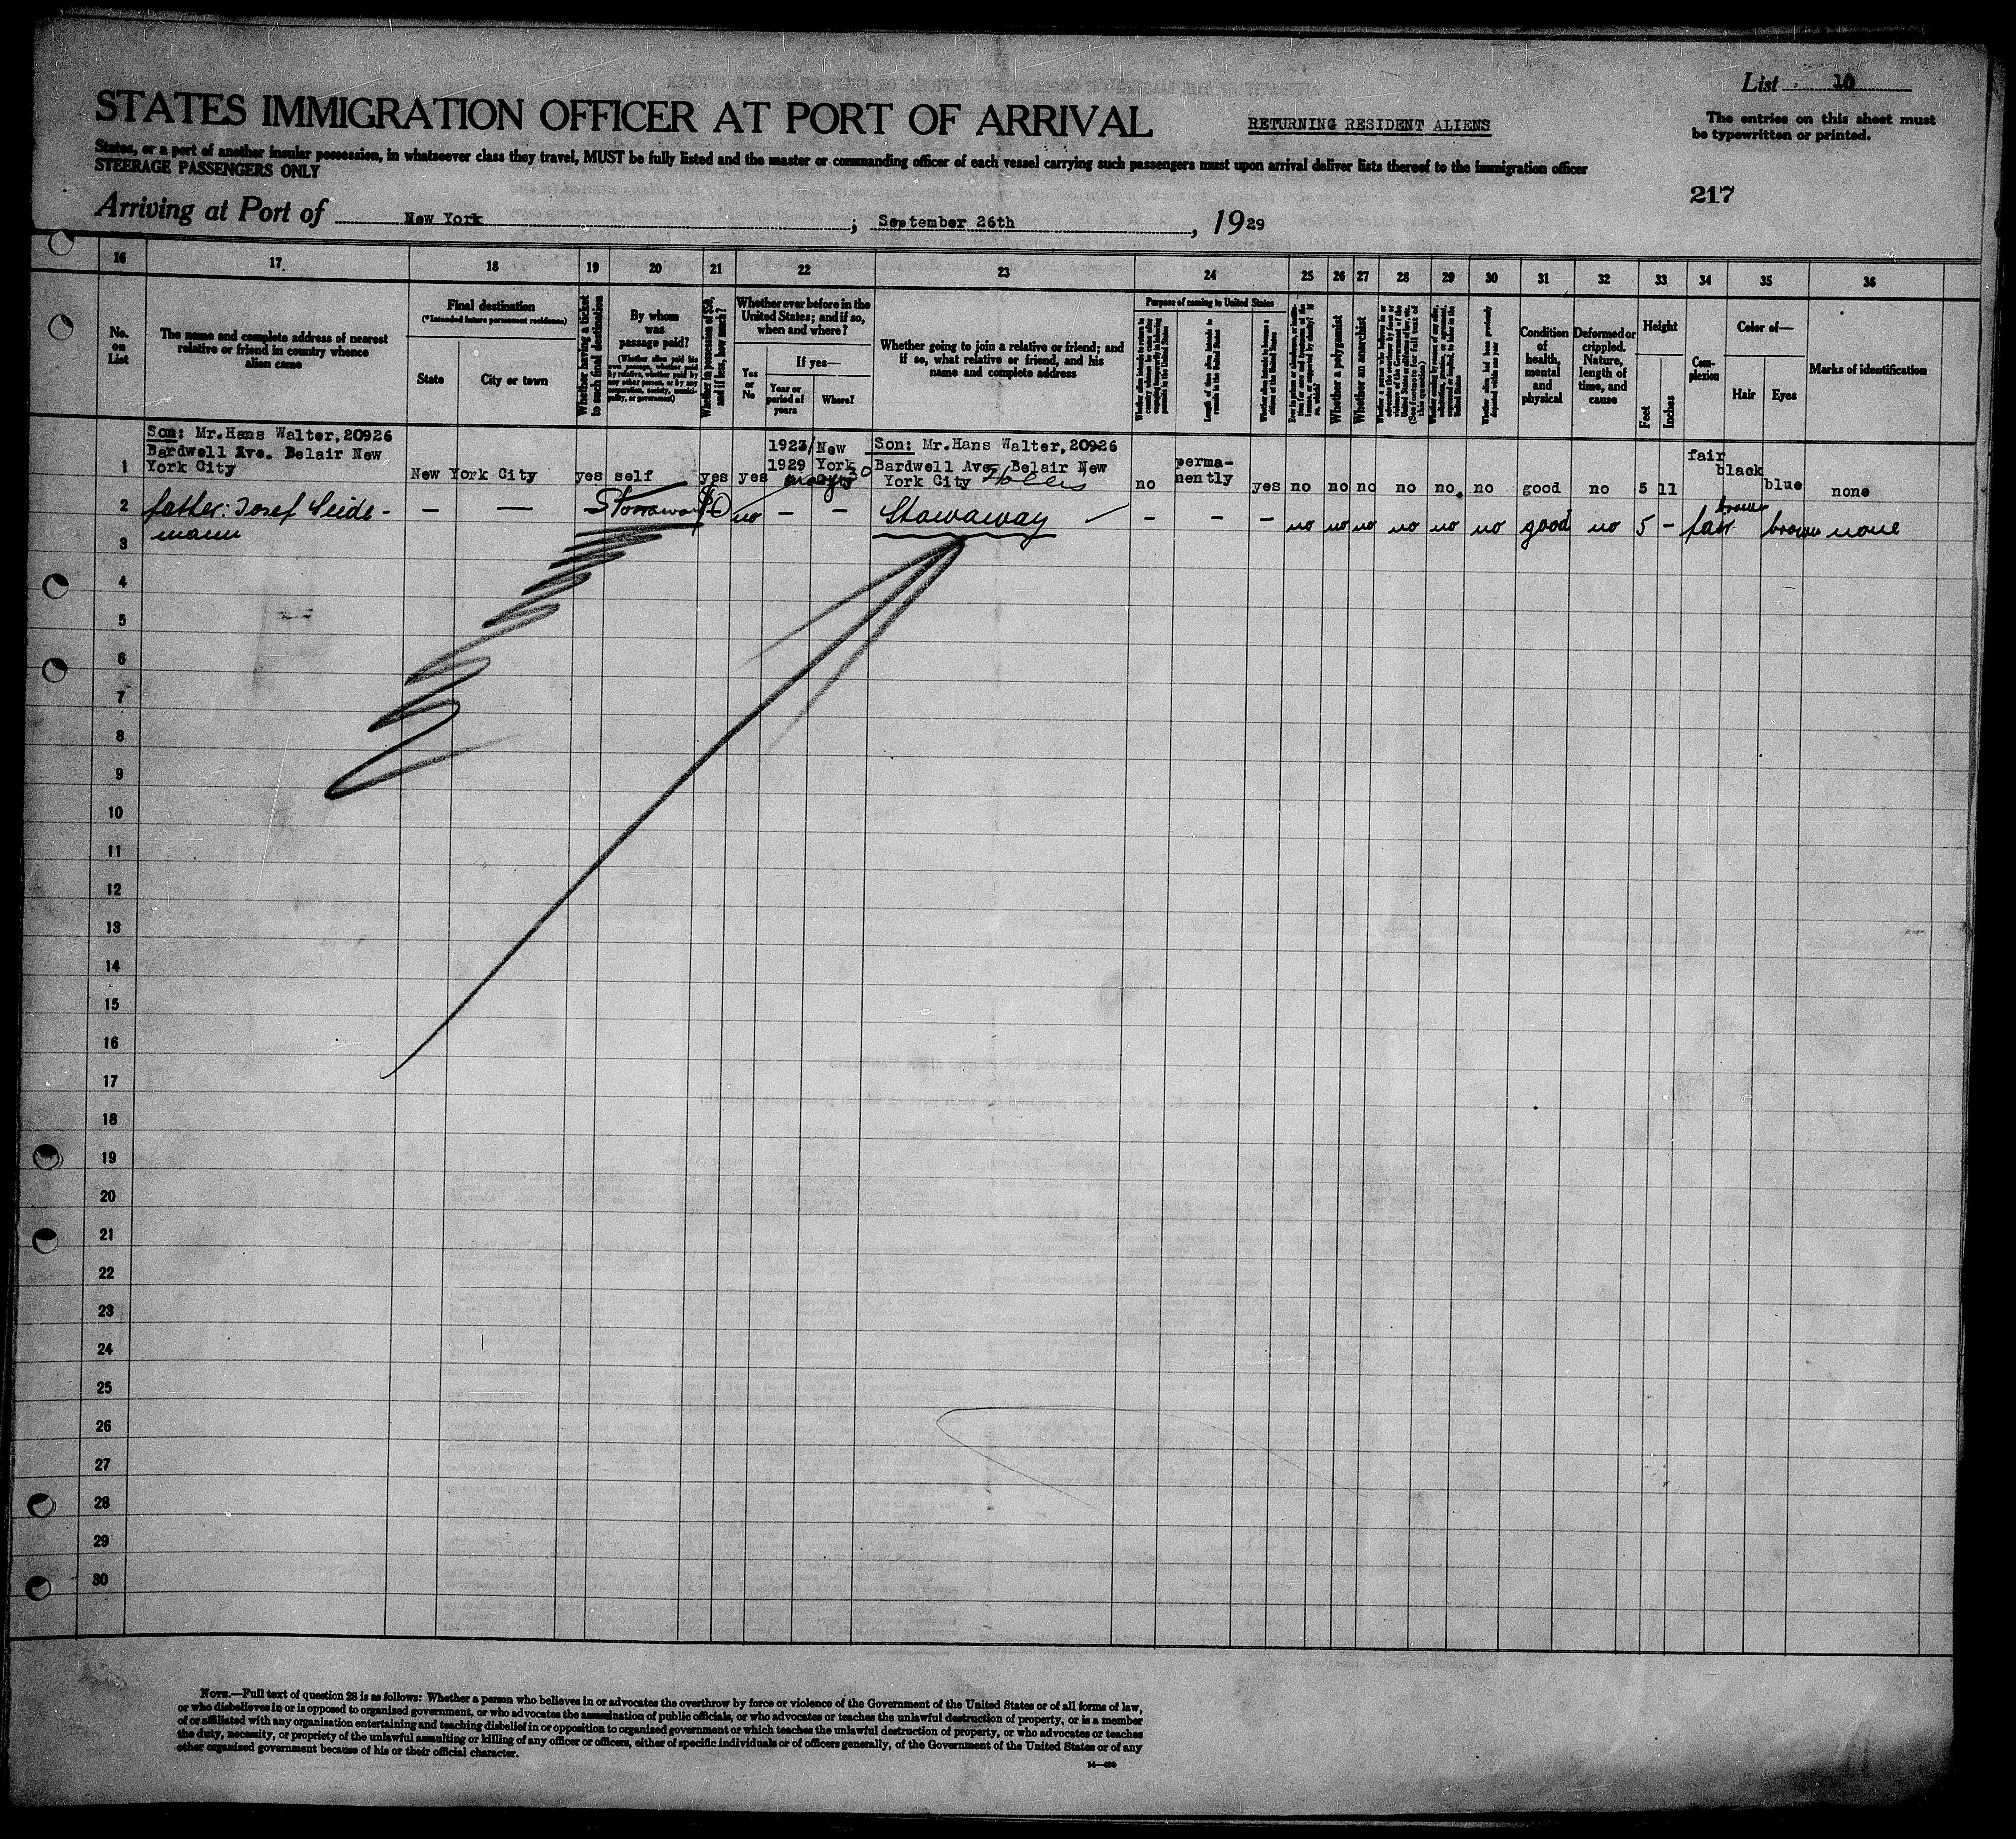 List 10
STATES IMMIGRATION OFFICER AT PORT OF ARRIVAL
RETURNING RESIDENT ALIENS
The entries on this sheet must
be typewritten or printed.
States, or a port of another insular possession, in whatsoever class they travel, MUST be fully listed and the master or commanding officer of each vessel carrying such passengers must upon arrival deliver lists thereof to the immigration officer
STEERAGE PASSENGERS ONLY
217
Arriving at Port of New York ; September 26th , 1929
16 17 18 19 20 21 22 23 24 25 26 27 28 29 30 31 32 33 34 35 36
No.
on
List
The name and complete address of nearest
relative or friend in country whence
alien came
Final destination
(*Intended future permanent residence)
State
City or town
Whether having a ticket
to such final destination
By whom
was
passage paid?
Whether in possession of $50,
and if less, how much?
Whether ever before in the
United States; and if so,
when and where?
Yes
or
No
If yes—
Year or
period of
years
Where?
Whether going to join a relative or friend; and
if so, what relative or friend, and his
name and complete address
Purpose of coming to United States
Whether a polygamist
Whether an anarchist
Condition
of
health,
mental
and
physical
Deformed or
crippled.
Nature,
length of
time, and
cause
Height
Feet
Inches
Com-
plexion
Color of—
Hair
Eyes
Marks of identification
1
Son: Mr.Hans Walter,20926
Bardwell Ave. Belair New
York City
New York City yes self yes yes
1923/ New
1929 York
Son: Mr.Hans Walter,20926
Bardwell Ave. Belair New
York City Hollis
no
perma-
nently
yes no no no no no. no good no 5 11 fair black blue none
2
father: Josef Seide-
mann
— — Stowaway $0 no — — Stowaway — — — — no no no no no no good no 5 — fair brown brown none
3
4
5
6
7
8
9
10
11
12
13
14
15
16
17
18
19
20
21
22
23
24
25
26
27
28
29
30
NOTE.—Full text of question 28 is as follows: Whether a person who believes in or advocates the overthrow by force or violence of the Government of the United States or of all forms of law,
or who disbelieves in or is opposed to organised government, or who advocates the assassination of public officials, or who advocates or teaches the unlawful destruction of property, or is a member
of or affiliated with any organization entertaining and teaching disbelief in or opposition to organised government or which teaches the unlawful destruction of property, or who advocates or teaches
the duty, necessity, or propriety of the unlawful assaulting or killing of any officer or officers, either of specific individuals or of officers generally, of the Government of the United States or of any
other organised government because of his or their official character.